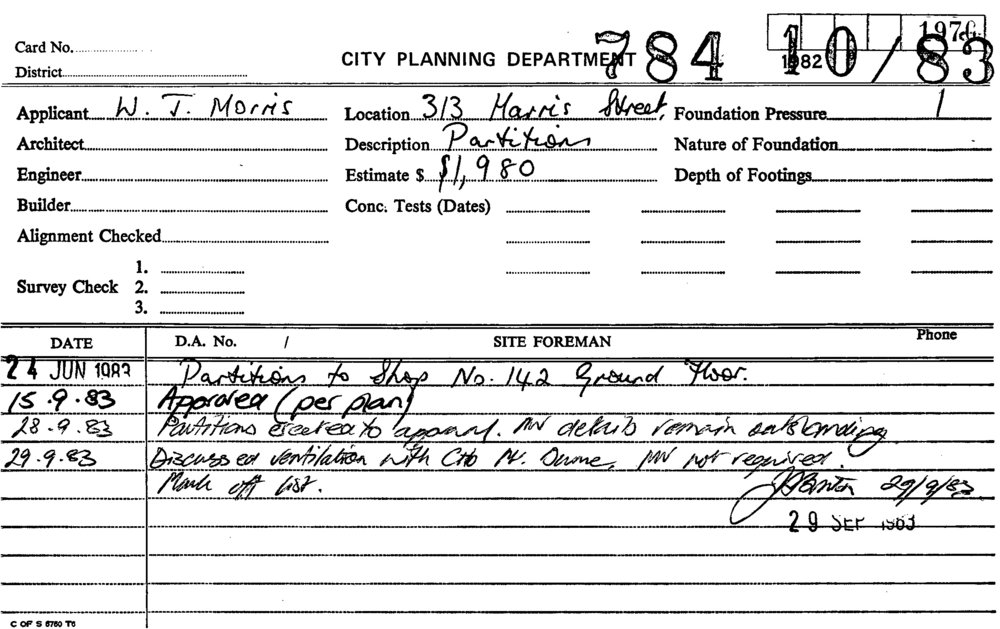 Card No.
District
CITY PLANNING DEPARTMENT
784 10/83
1976
1982
Applicant W. J. Morris Location 313 Harris Street, Foundation Pressure
Architect Description Partitions Nature of Foundation
Engineer Estimate $ $1,980 Depth of Footings
Builder Conc. Tests (Dates)
Alignment Checked
1.
Survey Check 2.
3.
DATE D.A. No. / SITE FOREMAN Phone
24 JUN 1983 Partitions to Shop No. 142 Ground Floor.
15.9.83 Approved (per plan)
28.9.83 Partitions erected to approval. MV details remain outstanding
29.9.83 Discussed ventilation with Mr. Dunne, MV not required.
Mark off list. 29/9/83
29 SEP 1983
C OF S 6760 T6